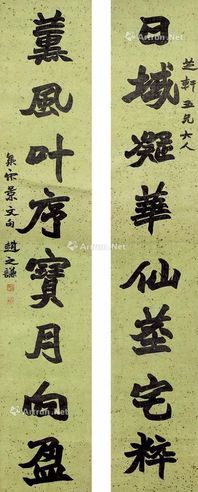 芝軒五兄大人
日域凝華仙莖宅粹
薰風叶序寶月向盈
集宋景文句 趙之謙
Artron.Net